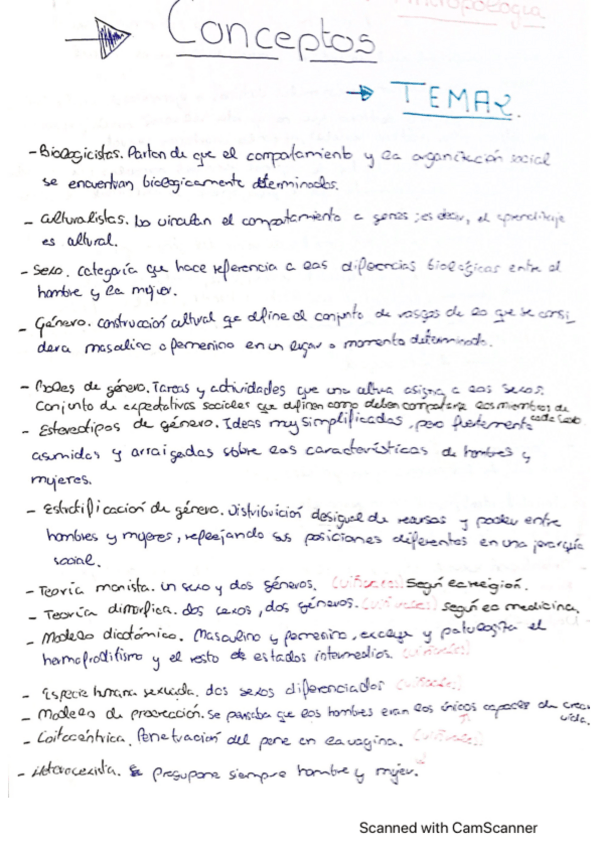 Antropología
Conceptos
TEMA 2.
- Biologicistas. Parten de que el comportamiento y la organización social
se encuentran biologicamente determinados.
- Culturalistas. Lo vinculan el comportamiento a genes; es decir, el aprendizaje
es cultural.
- Sexo. Categoría que hace referencia a las diferencias biológicas entre el
hombre y la mujer.
- Género. construcción cultural que define el conjunto de rasgos de lo que se consi_
dera masculino o femenino en un lugar o momento determinado.
- Roles de género. Tareas y actividades que una cultura asigna a los sexos.
Conjunto de expectativas sociales que definen como deben comportarse los miembros de
cada sexo
- Estereotipos de género. Ideas muy simplificadas, pero fuertemente
asumidas y arraigadas sobre las características de hombres y
mujeres.
- Estratificación de género. Distribución desigual de recursos y poder entre
hombres y mujeres, reflejando sus posiciones diferentes en una jerarquía
social.
- Teoría monista. un sexo y dos géneros. Según la religión.
- Teoría dimorfica. dos sexos, dos géneros. según la medicina.
- Modelo dicotómico. Masculino y femenino, excluye y patologiza el
hemafroditismo y el resto de estados intermedios.
- Especie humana sexuada. dos sexos diferenciados
- Modelo de procreación. Se pensaba que los hombres eran los únicos capaces de crear
vida.
- Coitocéntrica. Penetración del pene en la vagina.
- Heterocexista. Presupone siempre hombre y mujer.
Scanned with CamScanner